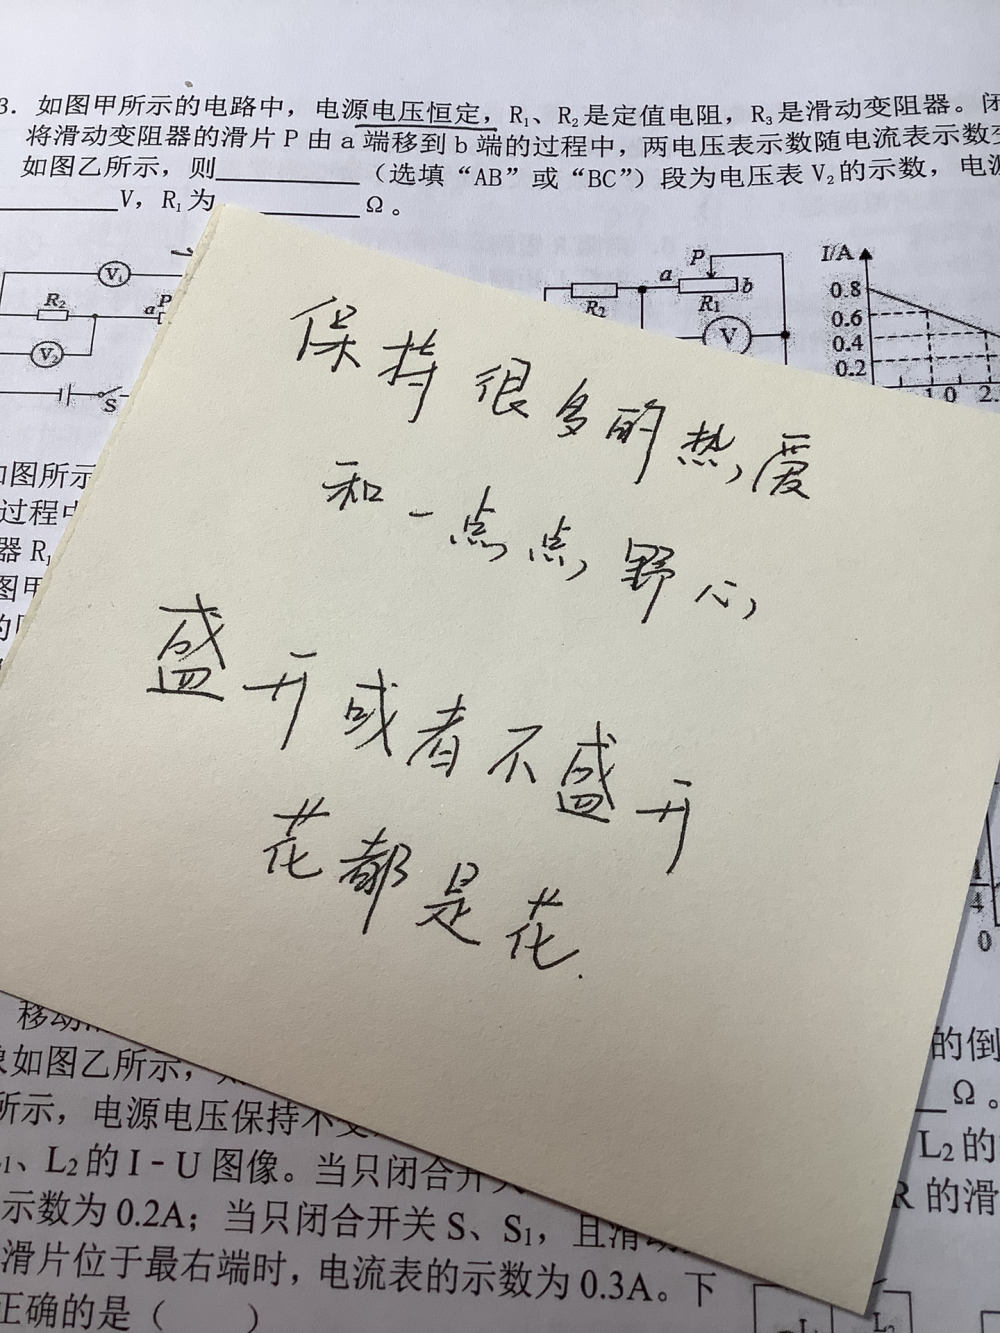 3. 如图甲所示的电路中，电源电压恒定，R₁、R₂是定值电阻，R₃是滑动变阻器。闭
将滑动变阻器的滑片 P 由 a 端移到 b 端的过程中，两电压表示数随电流表示数变
如图乙所示，则________（选填“AB”或“BC”）段为电压表 V₂的示数，电源
________V，R₁为________Ω。
V₁
R₂
a
P
V₂
S
R₂
a
P
b
R₁
V
I/A
0.8
0.6
0.4
0.2
1.0
2.
保持很多的热爱
和一点点野心
盛开或者不盛开
花都是花.
如图所示
过程中
器 R₁
图甲
的
1
4
0
移动
象如图乙所示，则
所示，电源电压保持不变
L₁、L₂的 I－U 图像。当只闭合开关
示数为 0.2A；当只闭合开关 S、S₁，且滑动
滑片位于最右端时，电流表的示数为 0.3A。下
正确的是（　　）
的倒
Ω。
L₂的
R 的滑
L₁
L₂